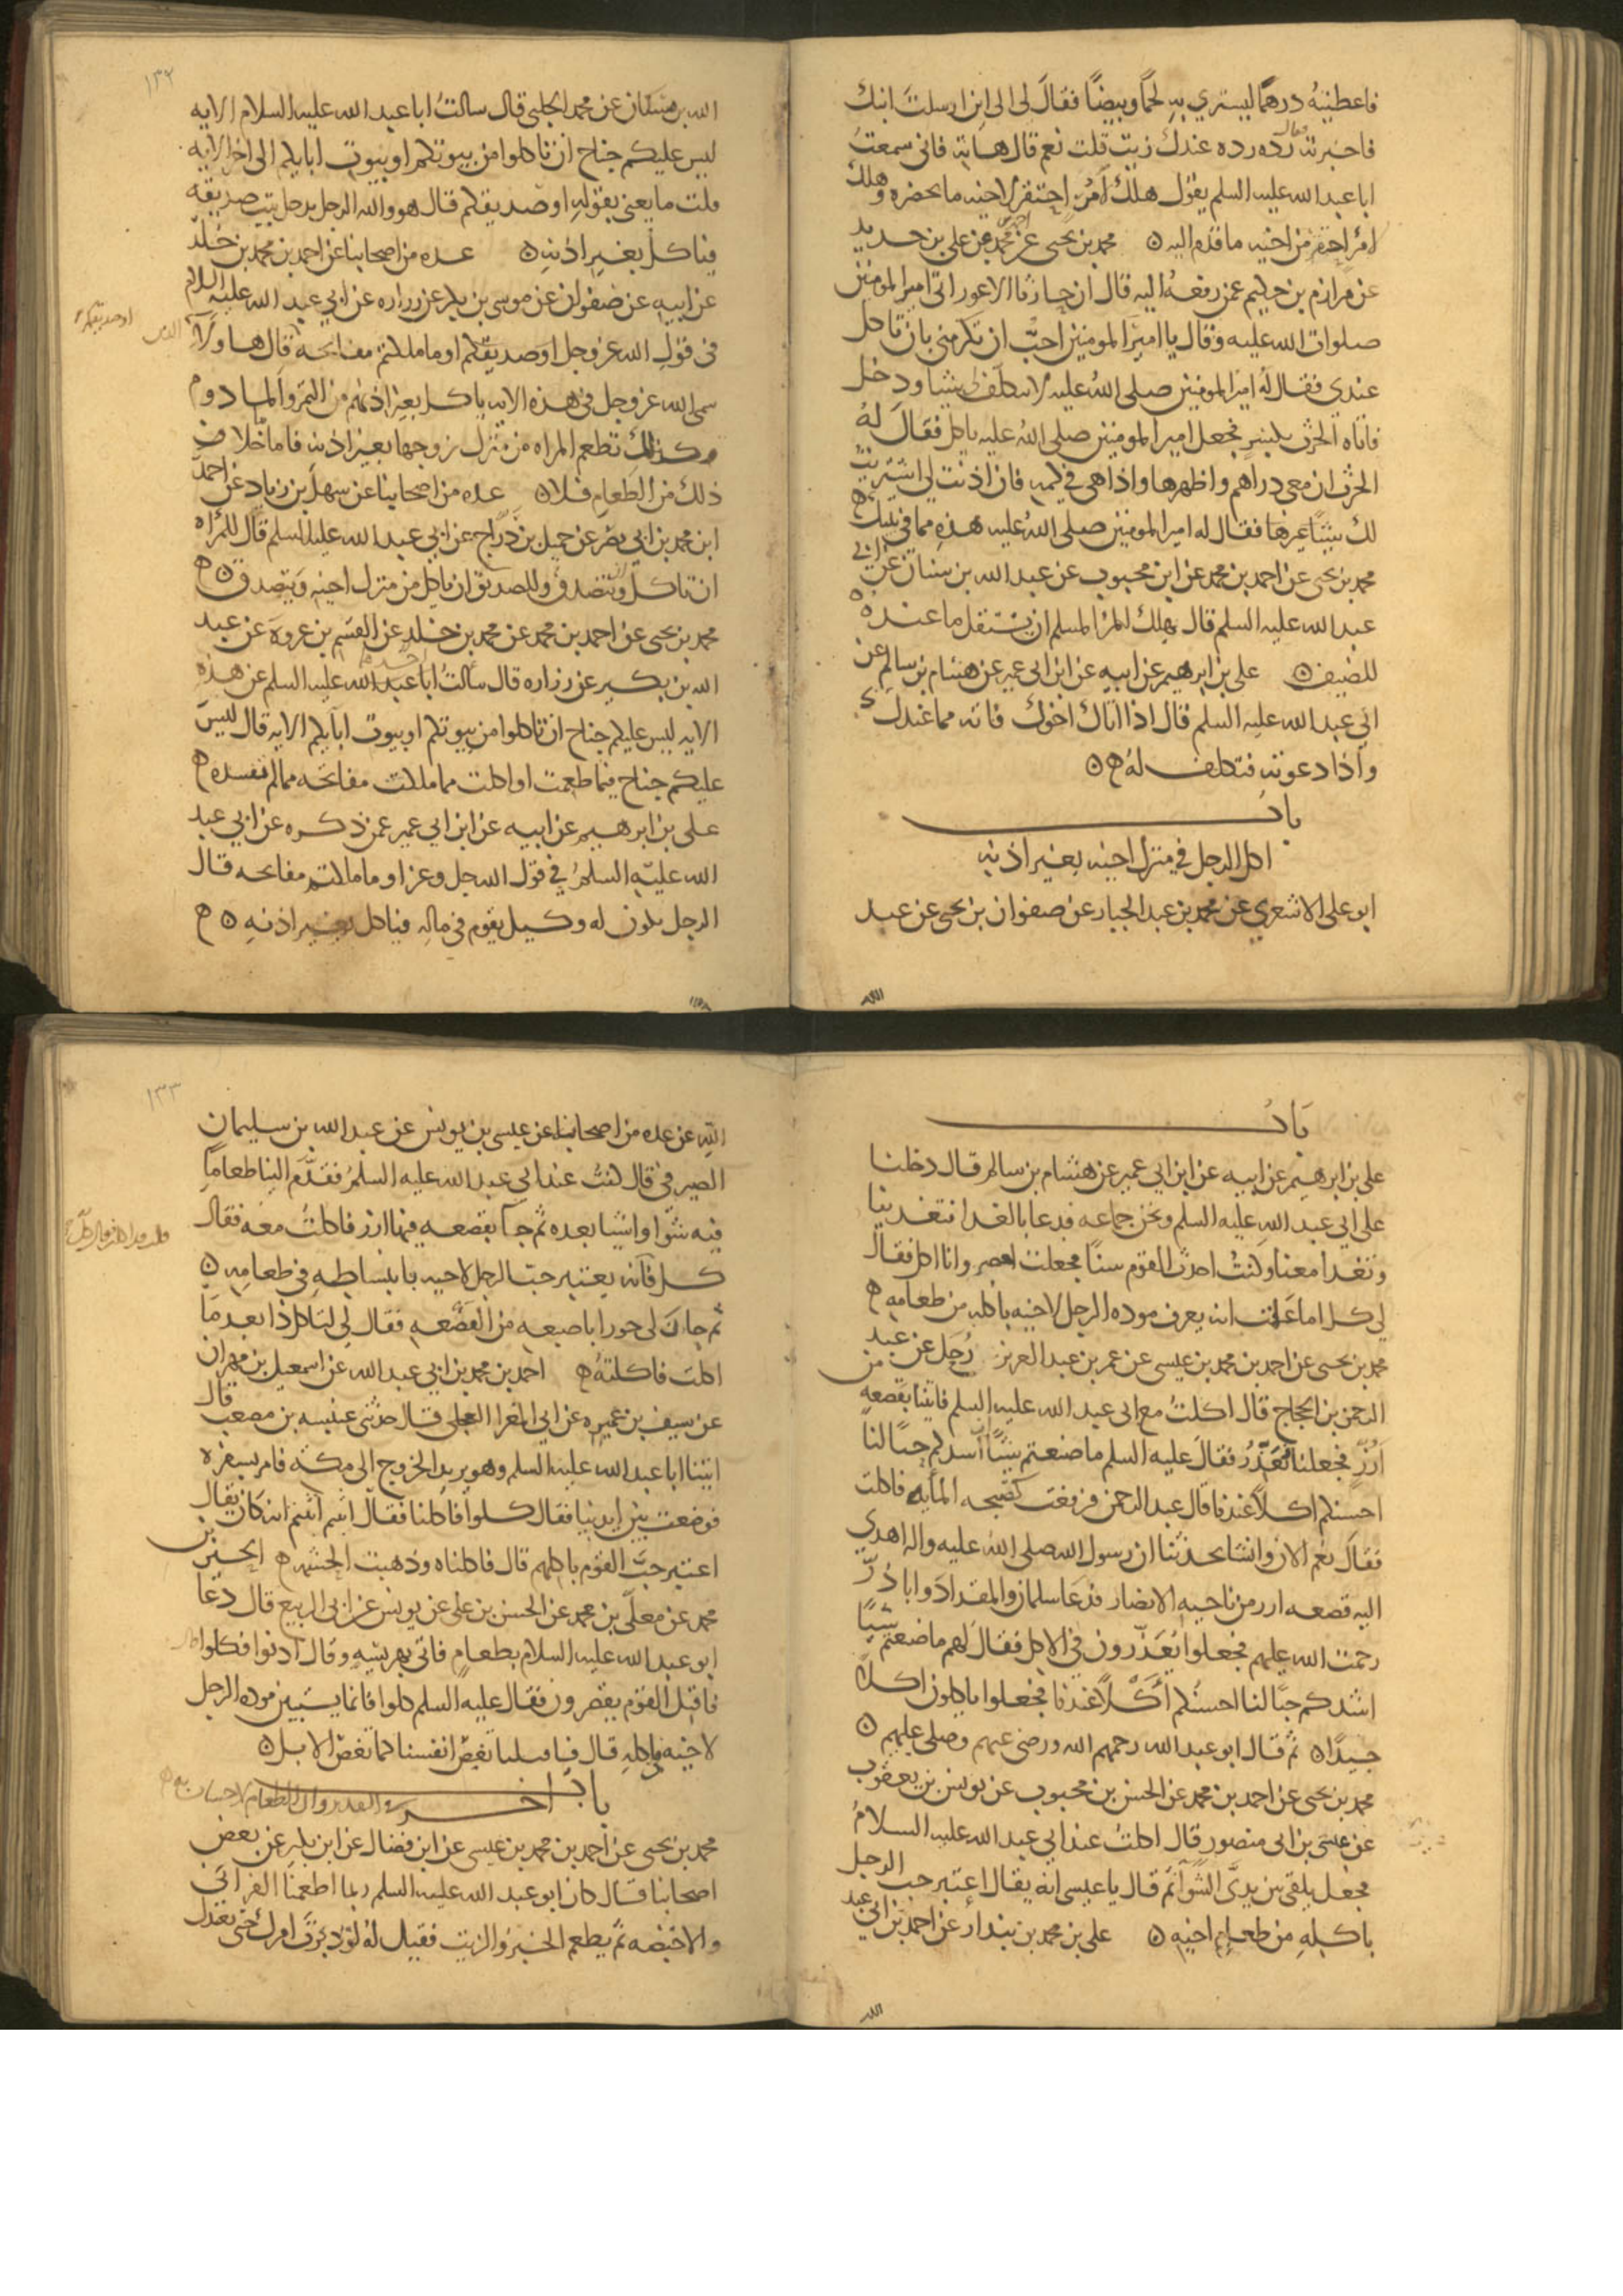 فاعطيته درهما ليشتري به لحما وبيضا فقال لي اين ارسلت ابنك
فاخبرته فقال رده رده عندك زيت قلت نعم قال هاته فاني سمعت
ابا عبد الله عليه السلم يقول هلك امرؤ احتقر لاخيه ما يحضره وهلك
امرؤ احتقر من اخيه ما قدم اليه محمد بن يحيى عن احمد بن محمد عن علي بن حديد
عن مرازم بن حكيم عمن رفعه اليه قال ان حارثا الاعور اتى امير المومنين
صلوات الله عليه وقال يا امير المومنين احب ان تكرمني بان تاكل
عندي فقال له امير المومنين صلى الله عليه لا تتكلف لي شيئا ودخل
فاتاه الحرث بكسر فجعل امير المومنين صلى الله عليه ياكل فقال له
الحرث ان معي دراهم واظهرها واذا هي في كمه فان اذنت لي اشتريت
لك شيئا غيرها فقال له امير المومنين صلى الله عليه هذه مما في بيتك
محمد بن يحيى عن احمد بن محمد عن ابن محبوب عن عبد الله بن سنان عن ابي
عبد الله عليه السلم قال يهلك المرء المسلم ان يستقل ما عنده
للضيف علي بن ابرهيم عن ابيه عن ابن ابي عمير عن هشام بن سالم عن
ابي عبد الله عليه السلم قال اذا اتاك اخوك فاته مما عندك
واذا دعوته فتكلف له
باب
اكل الرجل في منزل اخيه بغير اذنه
ابو علي الاشعري عن محمد بن عبد الجبار عن صفوان بن يحيى عن عبد
الله
١٣٢
الله بن مسكان عن محمد الحلبي قال سالت ابا عبد الله عليه السلام الايه
ليس عليكم جناح ان تاكلوا من بيوتكم او بيوت ابايكم الى اخر الايه
قلت ما يعني بقوله او صديقكم قال هو والله الرجل يدخل بيت صديقه
فياكل بغير اذنه عده من اصحابنا عن احمد بن محمد بن خلد
عن ابيه عن صفوان عن موسى بن بكر عن زراره عن ابي عبد الله عليه السلام
في قول الله عز وجل او صديقكم او ما ملكتم مفاتحه قال هاولآ الذين
او صديقكم
سمى الله عز وجل في هذه الايه ياكل بغير اذنهم من التمر والمادوم
وكذلك تطعم المراه من منزل زوجها بغير اذنه فاما خلاف
ذلك من الطعام فلا عده من اصحابنا عن سهل بن زياد عن احمد
ابن محمد بن ابي نصر عن جميل بن دراج عن ابي عبد الله عليه السلم قال للمراه
ان تاكل وان تتصدق وللصديق ان ياكل من منزل اخيه ويتصدق
محمد بن يحيى عن احمد بن محمد عن محمد بن خلد عن القسم بن عروة عن عبد
الله بن بكير عن زراره قال سالت ابا عبد الله عليه السلم عن هذه
الايه ليس عليكم جناح ان تاكلوا من بيوتكم او بيوت ابآيكم الايه قال ليس
عليكم جناح فيما طعمت او اكلت مما ملكت مفاتحه مالم تفسده
علي بن ابرهيم عن ابيه عن ابن ابي عمير عمن ذكره عن ابي عبد
الله عليه السلم في قول الله جل وعز او ما ملكتم مفاتحه قال
الرجل يكون له وكيل يقوم في ماله فياكل بغير اذنه
باب
علي بن ابرهيم عن ابيه عن ابن ابي عمير عن هشام بن سالم قال دخلنا
على ابي عبد الله عليه السلم ونحن جماعه فدعا بالغدا فتغدينا
وتغدا معنا وكنت احدث القوم سنا فجعلت اقصر وانا اكل فقال
لي كل اما علمت انه يعرف موده الرجل لاخيه باكله من طعامه
محمد بن يحيى عن احمد بن محمد بن عيسى عن عمر بن عبد العزيز رجل عن عبد
الرحمن بن الحجاج قال اكلت مع ابي عبد الله عليه السلم فاتينا بقصعه من
ارز فجعلنا نعذر فقال عليه السلم ما صنعتم شيئا اشدكم حبا لنا
احسنكم اكلا عندنا قال عبد الرحمن فرفعت المايه فاكلت
فقال نعم الان وانشا يحدثنا ان رسول الله صلى الله عليه واله اهدي
اليه قصعه ارز من ناحيه الانصار فدعا سلمان والمقداد وابا ذر
رحمت الله عليهم فجعلوا يعذرون في الاكل فقال لهم ما صنعتم شيئا
اشدكم حبا لنا احسنكم اكلا عندنا فجعلوا ياكلون اكلا
جيدا ثم قال ابو عبد الله رحمهم الله ورضي عنهم وصلى عليهم
محمد بن يحيى عن احمد بن محمد عن الحسن بن محبوب عن يونس بن يعقوب
عن عيسى بن ابي منصور قال اكلت عند ابي عبد الله عليه السلام
فجعل يلقي بين يدي الشوآ ثم قال يا عيسى انه يقال اعتبر حب الرجل
باكله من طعام اخيه علي بن محمد بن بندار عن احمد بن ابي عبد
الله
١٣٣
الله عن عده من اصحابنا عن عيسى بن يونس عن عبد الله بن سليمان
الصيرفي قال كنت عند ابي عبد الله عليه السلم فقدم الينا طعاما
فيه شوا واشيا بعده ثم جآ بقصعه فيها ارز فاكلت معه فقال
كل فانه يعتبر حب الرجل لاخيه بانبساطه في طعامه
ثم حاز لي حورا باصبعه من القصعه فقال لي لتاكلن ذا بعد ما
اكلت فاكلته احمد بن محمد بن ابي عبد الله عن اسمعيل بن مهران
عن سيف بن عميره عن ابي المغرا العجلي قال حدثني عنبسه بن مصعب قال
اتينا ابا عبد الله عليه السلم وهو يريد الخروج الى مكة فامر بسفره
فوضعت بين ايدينا فقال كلوا فاكلنا فقال ابيتم ابيتم انه كان يقال
اعتبر حب القوم باكلهم قال فاكلناه وذهبت الحشمه الحسين بن
محمد عن معلى بن محمد عن الحسن بن علي عن يونس عن ابي الربيع قال دعا
ابو عبد الله عليه السلام بطعام فاتي بهريسه وقال ادنوا فكلوا
فاقبل القوم يقصرون فقال عليه السلم كلوا فانما يستبين موده الرجل
لاخيه باكله قال فاقبلنا نغص انفسنا كما تغص الابل
باب اخر في التقدير وان الطعام لا حساب له
محمد بن يحيى عن احمد بن محمد بن عيسى عن ابن فضال عن ابن بكير عن بعض
اصحابنا قال كان ابو عبد الله عليه السلم ربما اطعمنا الفراني
والاخبصه ثم يطعم الخبز والزيت فقيل له لو دبرت امرك حتى تعدل